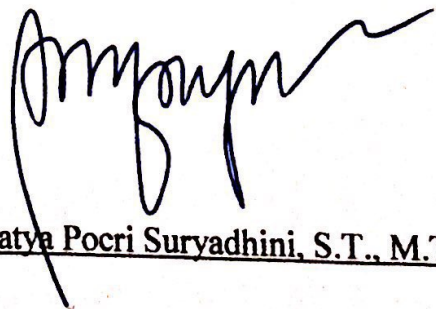 atya Pocri Suryadhini, S.T., M.T